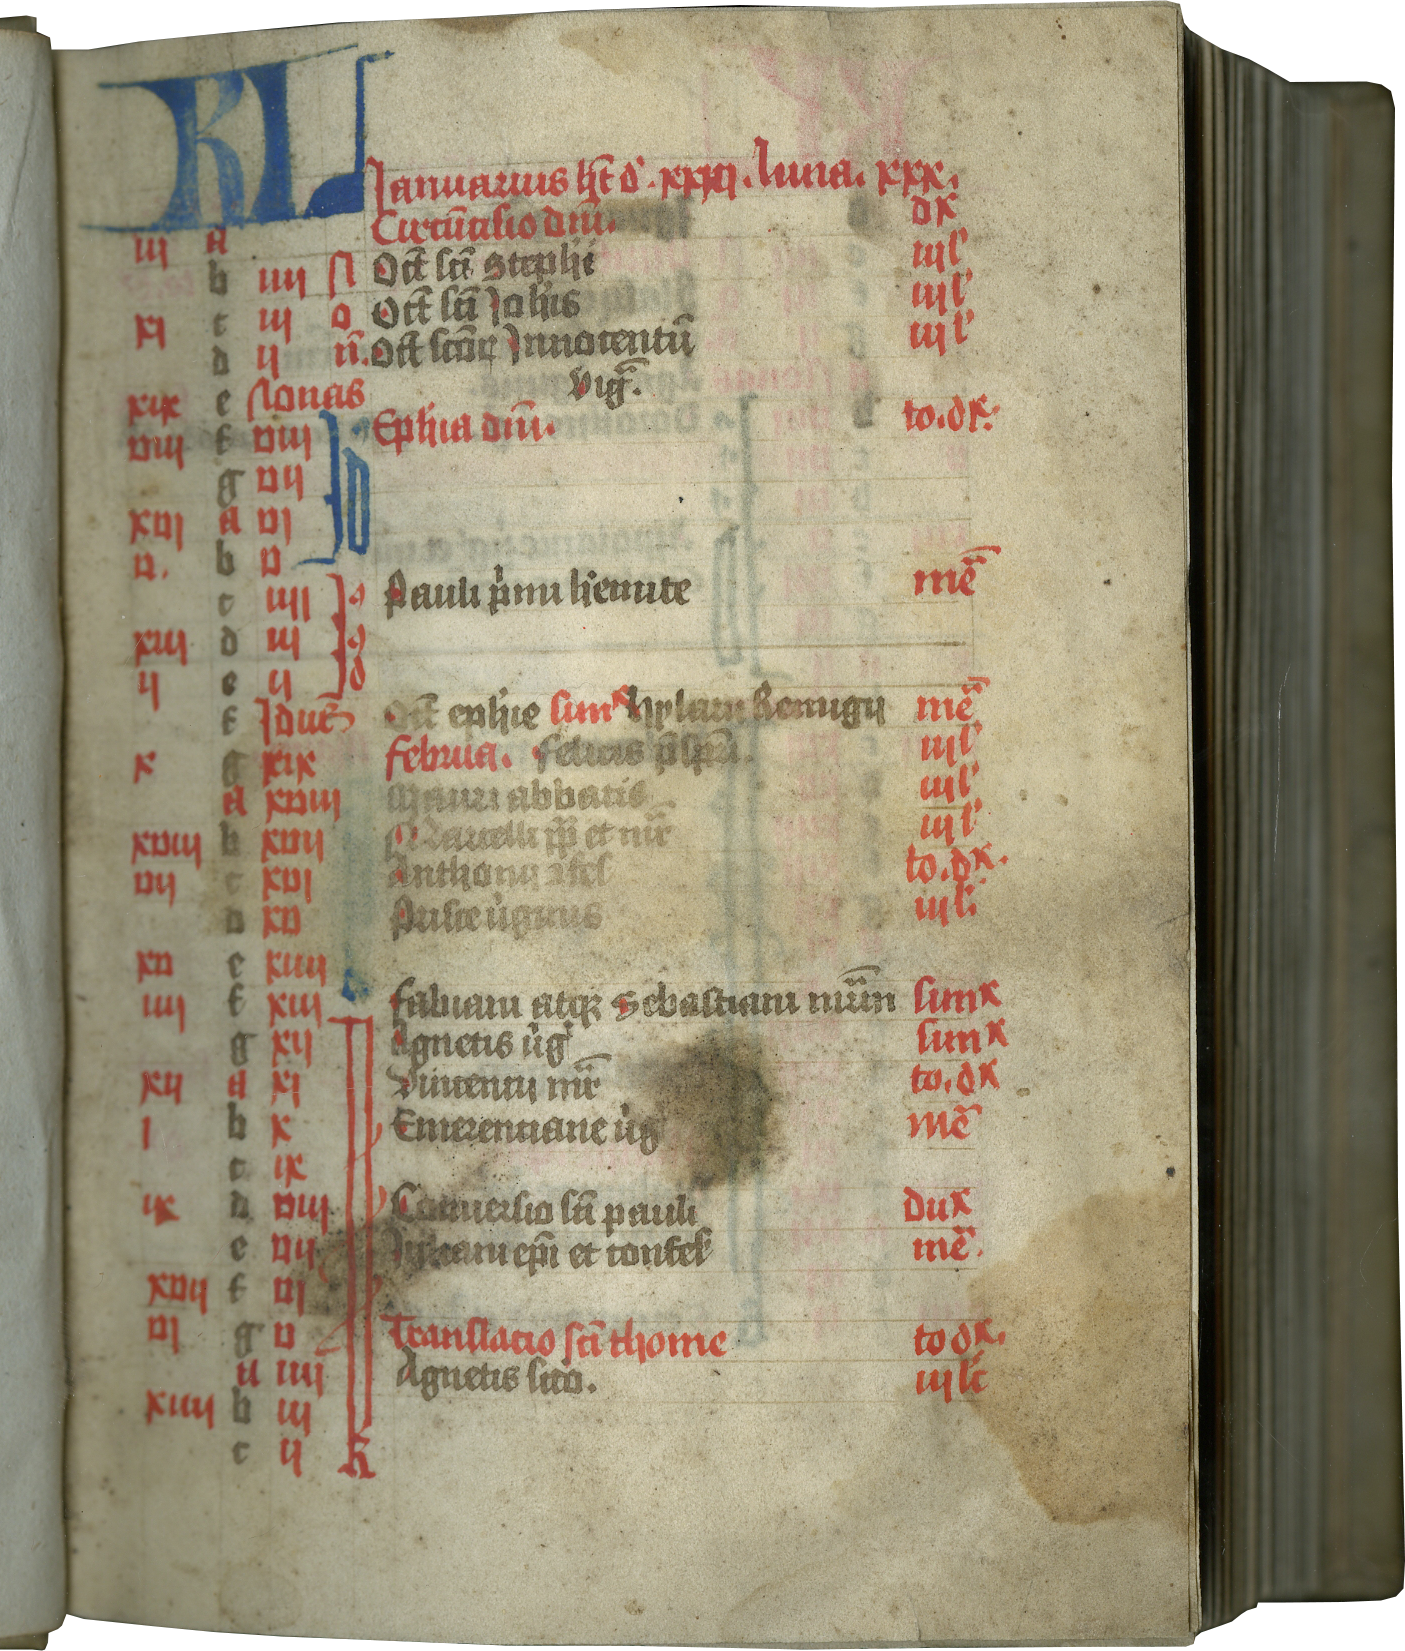 KL Januarius ht d. xxxi. luna. xxx.
iii A Circūcisio dñi. dx
b iiii N Oct̄ scī Stephi iii l'
xi c iii o Oct̄ scī Johis iii l'
d ii n̄. Oct̄ scōr Innocentū iii l'
xix e Nonas viḡ.
viii f viii Ephia dñi. to. dx.
g vii
xvi A vi
v. b v
c iiii Pauli p̄mi h'emite mē
xiii d iii
ii e ii
f Iduꝰ Oct̄ ephie simx hylarii Remigii mē
x g xix februa. felicis iii l'
A xviii Mauri abbatis iii l'
xviii b xvii Marcelli pp̄ et mr̄ iii l'
vii c xvi Anthonii to. dx.
d xv Prisce v'ginis iii l'
xv e xiiii
iiii f xiii fabiani atqꝫ Sebastiani mr̄m simx
g xii Agnetis v'g' simx
xii A xi Vincencii mr̄ to. dx
i b x Emerenciane v'g mē
c ix
ix d viii Conuersio scī pauli dux
e vii Juliani ep̄i et confes̄ mē.
xvii f vi
vi g v Translacio scī thome to dx.
A iiii Agnetis scḋo. iii lc̄
xiiii b iii
c ii K